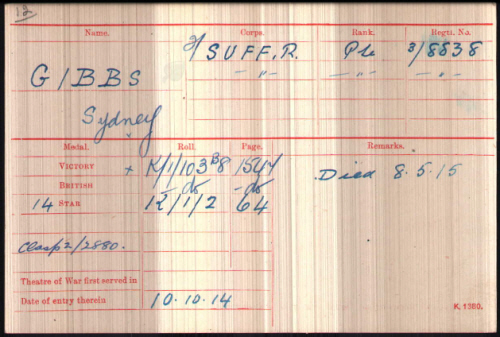 Name. Corps. Rank. Regtl. No.
GIBBS 2/ SUFF.R. Pte 3/8838
Sydney — " — — " — — " —
Medal. Roll. Page. Remarks.
VICTORY + K/1/103 B8 Died 8.5.15
BRITISH — do — do
14 STAR K/1/2 64
Clasp 2/2880.
Theatre of War first served in
Date of entry therein 10.10.14
K. 1380.